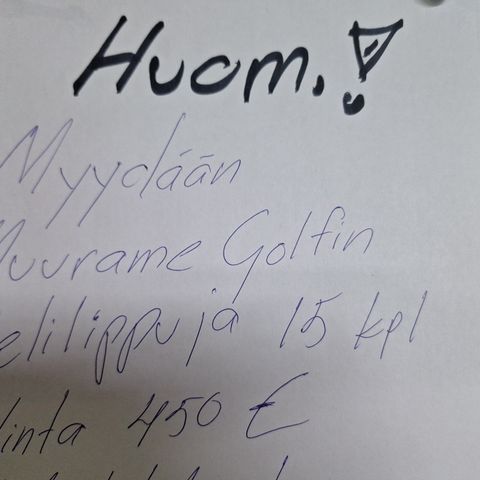 Huom.!
Myydään
Muurame Golfin
elilippuja 15 kpl
Hinta 450 €